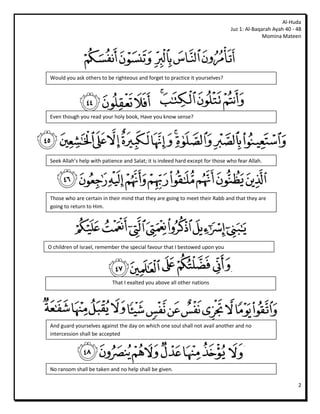 Al-Huda
Juz 1: Al-Baqarah Ayah 40 - 48
Momina Mateen
أَتَأْمُرُونَ ٱلنَّاسَ بِٱلْبِرِّ وَتَنسَوْنَ أَنفُسَكُمْ
Would you ask others to be righteous and forget to practice it yourselves?
وَأَنتُمْ تَتْلُونَ ٱلْكِتَٰبَ ۚ أَفَلَا تَعْقِلُونَ ٤٤
Even though you read your holy book, Have you know sense?
وَٱسْتَعِينُوا۟ بِٱلصَّبْرِ وَٱلصَّلَوٰةِ ۚ وَإِنَّهَا لَكَبِيرَةٌ إِلَّا عَلَى ٱلْخَٰشِعِينَ ٤٥
Seek Allah's help with patience and Salat; it is indeed hard except for those who fear Allah.
ٱلَّذِينَ يَظُنُّونَ أَنَّهُم مُّلَٰقُوا۟ رَبِّهِمْ وَأَنَّهُمْ إِلَيْهِ رَٰجِعُونَ ٤٦
Those who are certain in their mind that they are going to meet their Rabb and that they are
going to return to Him.
يَٰبَنِىٓ إِسْرَٰٓءِيلَ ٱذْكُرُوا۟ نِعْمَتِىَ ٱلَّتِىٓ أَنْعَمْتُ عَلَيْكُمْ
O children of Israel, remember the special favour that I bestowed upon you
وَأَنِّى فَضَّلْتُكُمْ عَلَى ٱلْعَٰلَمِينَ ٤٧
That I exalted you above all other nations
وَٱتَّقُوا۟ يَوْمًا لَّا تَجْزِى نَفْسٌ عَن نَّفْسٍ شَيْـًٔا وَلَا يُقْبَلُ مِنْهَا شَفَٰعَةٌ
And guard yourselves against the day on which one soul shall not avail another and no
intercession shall be accepted
وَلَا يُؤْخَذُ مِنْهَا عَدْلٌ وَلَا هُمْ يُنصَرُونَ ٤٨
No ransom shall be taken and no help shall be given.
2